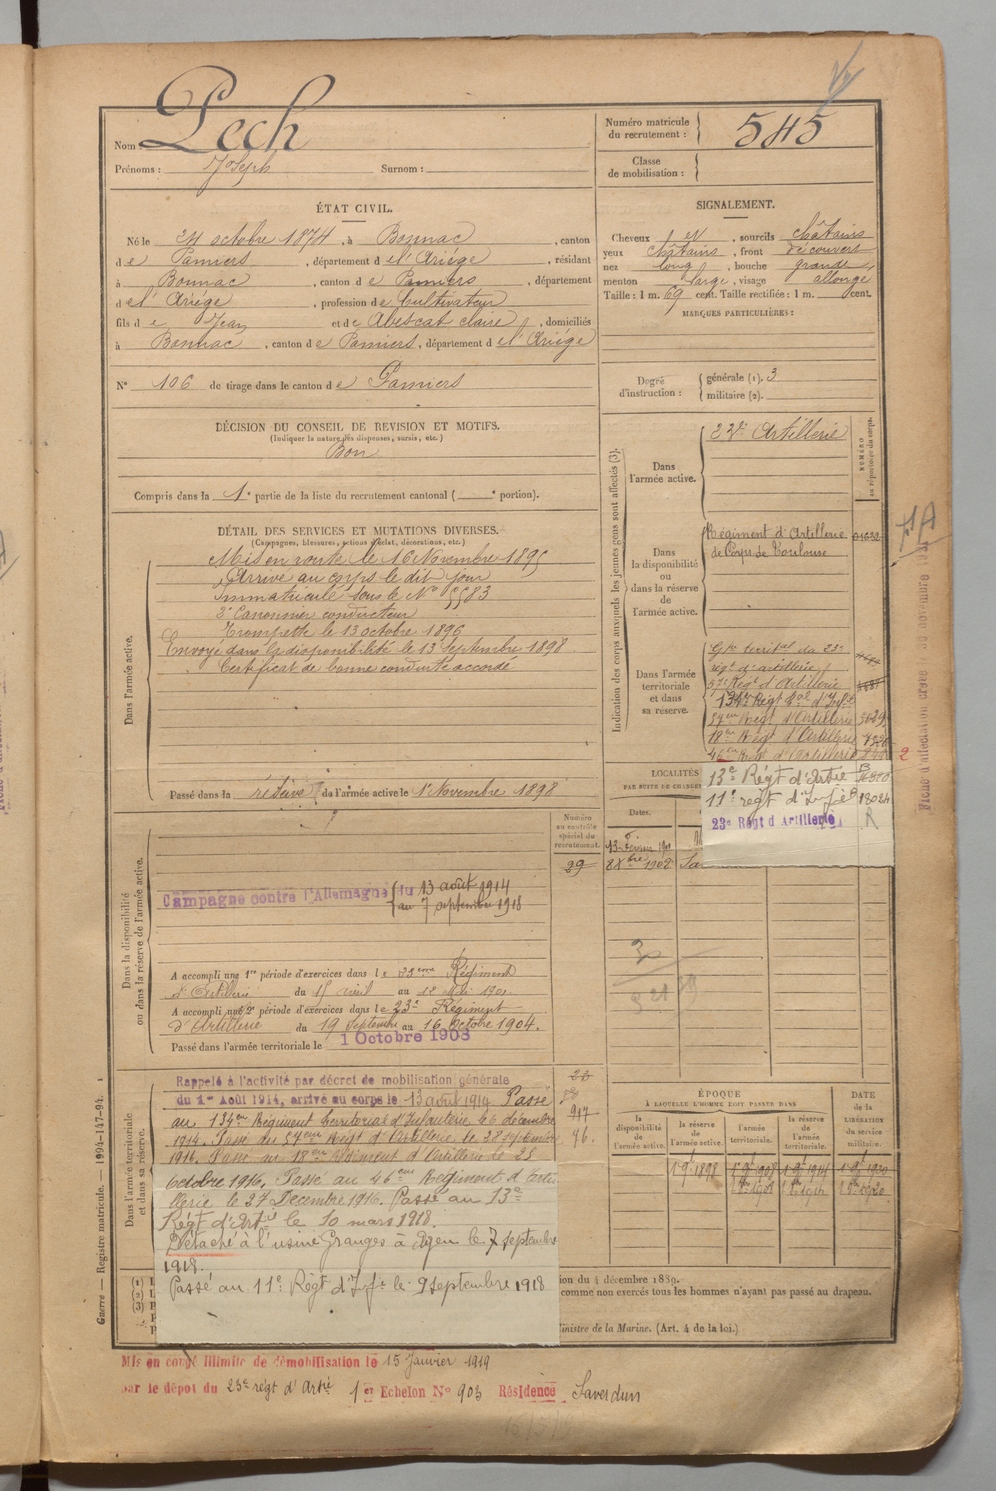 Nom Pech
Prénoms : Joseph Surnom :
Numéro matricule du recrutement : 545
Classe de mobilisation :
ÉTAT CIVIL.
Né le 24 octobre 1874, à Bonnac, canton
de Pamiers, département de l'Ariége, résidant
à Bonnac, canton de Pamiers, département
de l'Ariége, profession de Cultivateur
fils de Jean et de Abescat claire, domiciliés
à Bonnac, canton de Pamiers, département de l'Ariége
N° 106 de tirage dans le canton de Pamiers
SIGNALEMENT.
Cheveux et, sourcils châtains
yeux châtains, front découvert
nez long, bouche grande
menton large, visage allongé
Taille : 1 m. 69 cent. Taille rectifiée : 1 m. cent.
MARQUES PARTICULIÈRES :
Degré d'instruction : générale (1). 3
militaire (2).
DÉCISION DU CONSEIL DE REVISION ET MOTIFS.
(Indiquer la nature des dispenses, sursis, etc.)
Bon
Compris dans la 1e partie de la liste du recrutement cantonal ( e portion).
DÉTAIL DES SERVICES ET MUTATIONS DIVERSES.
(Campagnes, blessures, actions d'éclat, décorations, etc.)
Dans l'armée active.
Mis en route le 16 Novembre 1895
Arrivé au corps le dit jour
Immatriculé sous le N° 5583
2e Canonnier conducteur
Trompette le 13 octobre 1896
Envoyé dans la disponibilité le 13 septembre 1898
Certificat de bonne conduite accordé
Passé dans la réserve de l'armée active le 1er Novembre 1898
Indication des corps auxquels les jeunes gens sont affectés (3).
NUMÉRO au répertoire du corps.
Dans l'armée active.
23e Artillerie
Dans la disponibilité ou dans la réserve de l'armée active.
Régiment d'Artillerie
de Corps de Toulouse
Dans l'armée territoriale et dans sa réserve.
Gpe territal du 23e
régt d'artillerie
57e Régt d'Artillerie
134e Régt tal d'Infie
57em Régt d'Artillerie
18em Régt d'Artillerie
46em Régt d'Artillerie
13e Régt d'Artie
11e régt d'Infie 18024
23e Régt d'Artillerie R
LOCALITÉS
PAR SUITE DE CHANGE
Dates.
13 Février 1901
8 Xbre 1902 Sa
Dans la disponibilité ou dans la réserve de l'armée active.
Numéro au contrôle spécial du recrutement.
29
Campagne contre l'Allemagne du 13 août 1914
au 7 septembre 1918
A accompli une 1re période d'exercices dans le 23eme Régiment
d'Artillerie du 15 avril au 12 Mai 1901.
A accompli une 2e période d'exercices dans le 23e Régiment
d'Artillerie du 19 septembre au 16 Octobre 1904.
Passé dans l'armée territoriale le 1 Octobre 1908
Dans l'armée territoriale et dans sa réserve.
Rappelé à l'activité par décret de mobilisation générale
du 1er Août 1914, arrivé au corps le 13 août 1914 Passé
au 134em Régiment territorial d'Infanterie le 6 décembre
1914. Passé au 57eme Régt d'Artillerie le 28 septembre
1916. Passé au 18eme Régiment d'Artillerie le 25
octobre 1916, Passé au 46eme Régiment d'Arti
llerie le 27 Décembre 1916. Passé au 13e
Régt d'Artie le 10 mars 1918.
Détaché à l'usine Granges à Agen le 7 septembre
1918.
Passé au 11e Régt d'Infie le 9 septembre 1918
917
96.
ÉPOQUE
À LAQUELLE L'HOMME DOIT PASSER DANS
la disponibilité de l'armée active.
la réserve de l'armée active.
l'armée territoriale.
la réserve de l'armée territoriale.
DATE de la LIBÉRATION du service militaire.
ion du 4 décembre 1889.
comme non exercés tous les hommes n'ayant pas passé au drapeau.
Ministre de la Marine. (Art. 4 de la loi.)
Guerre — Registre matricule. — 1994-147-94.
Mis en congé illimité de démobilisation le 15 Janvier 1919
par le dépot du 23e régt d'Artie 1er Echelon N° 903 Résidence Saverdun